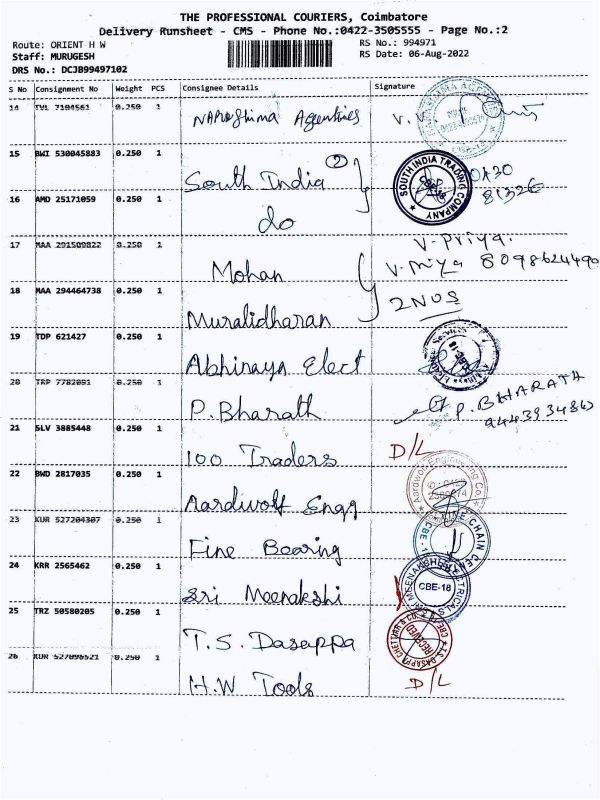 THE PROFESSIONAL COURIERS, Coimbatore
Delivery Runsheet - CMS - Phone No.:0422-3505555 - Page No.:2
Route: ORIENT H W
RS No.: 994971
Staff: MURUGESH
RS Date: 06-Aug-2022
DRS No.: DCJB99497102
S No Consignment No Weight PCS Consignee Details Signature
14 TVL 7104561 0.250 1 Narashima Agentines
15 BWI 530045883 0.250 1 South India 2
SOUTH INDIA TRADING COMPANY
CBE-18
16 AMD 25171059 0.250 1 do
17 MAA 291509822 0.250 1 Mohan
V. Priya.
V. Priya 8098624490
18 MAA 294464738 0.250 1 Muralidharan
2 NOS
19 TDP 621427 0.250 1 Abhinaya Elect
20 TRP 7782051 0.250 1 P. Bharath P. BHARATH
21 SLV 3885448 0.250 1 100 Traders D/L
22 BWD 2817035 0.250 1 Aardwolf Engg
Aardwolf Engineering Co.
23 KUR 527204307 0.250 1 Fine Bearing
24 KRR 2565462 0.250 1 Sri Meenakshi
CBE-18
25 TRZ 50580205 0.250 1 T.S. Dasappa
T.S. DASAPPA CHETTIAR & CO.
RECEIVED
26 KUR 527096521 0.250 1 H.W Tools D/L